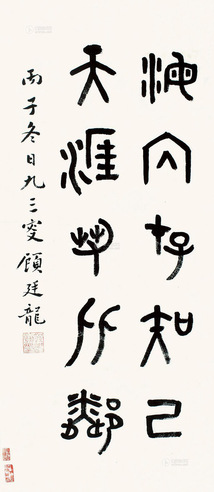 海内存知己
天涯若比鄰
丙子冬日九三叟顧廷龍